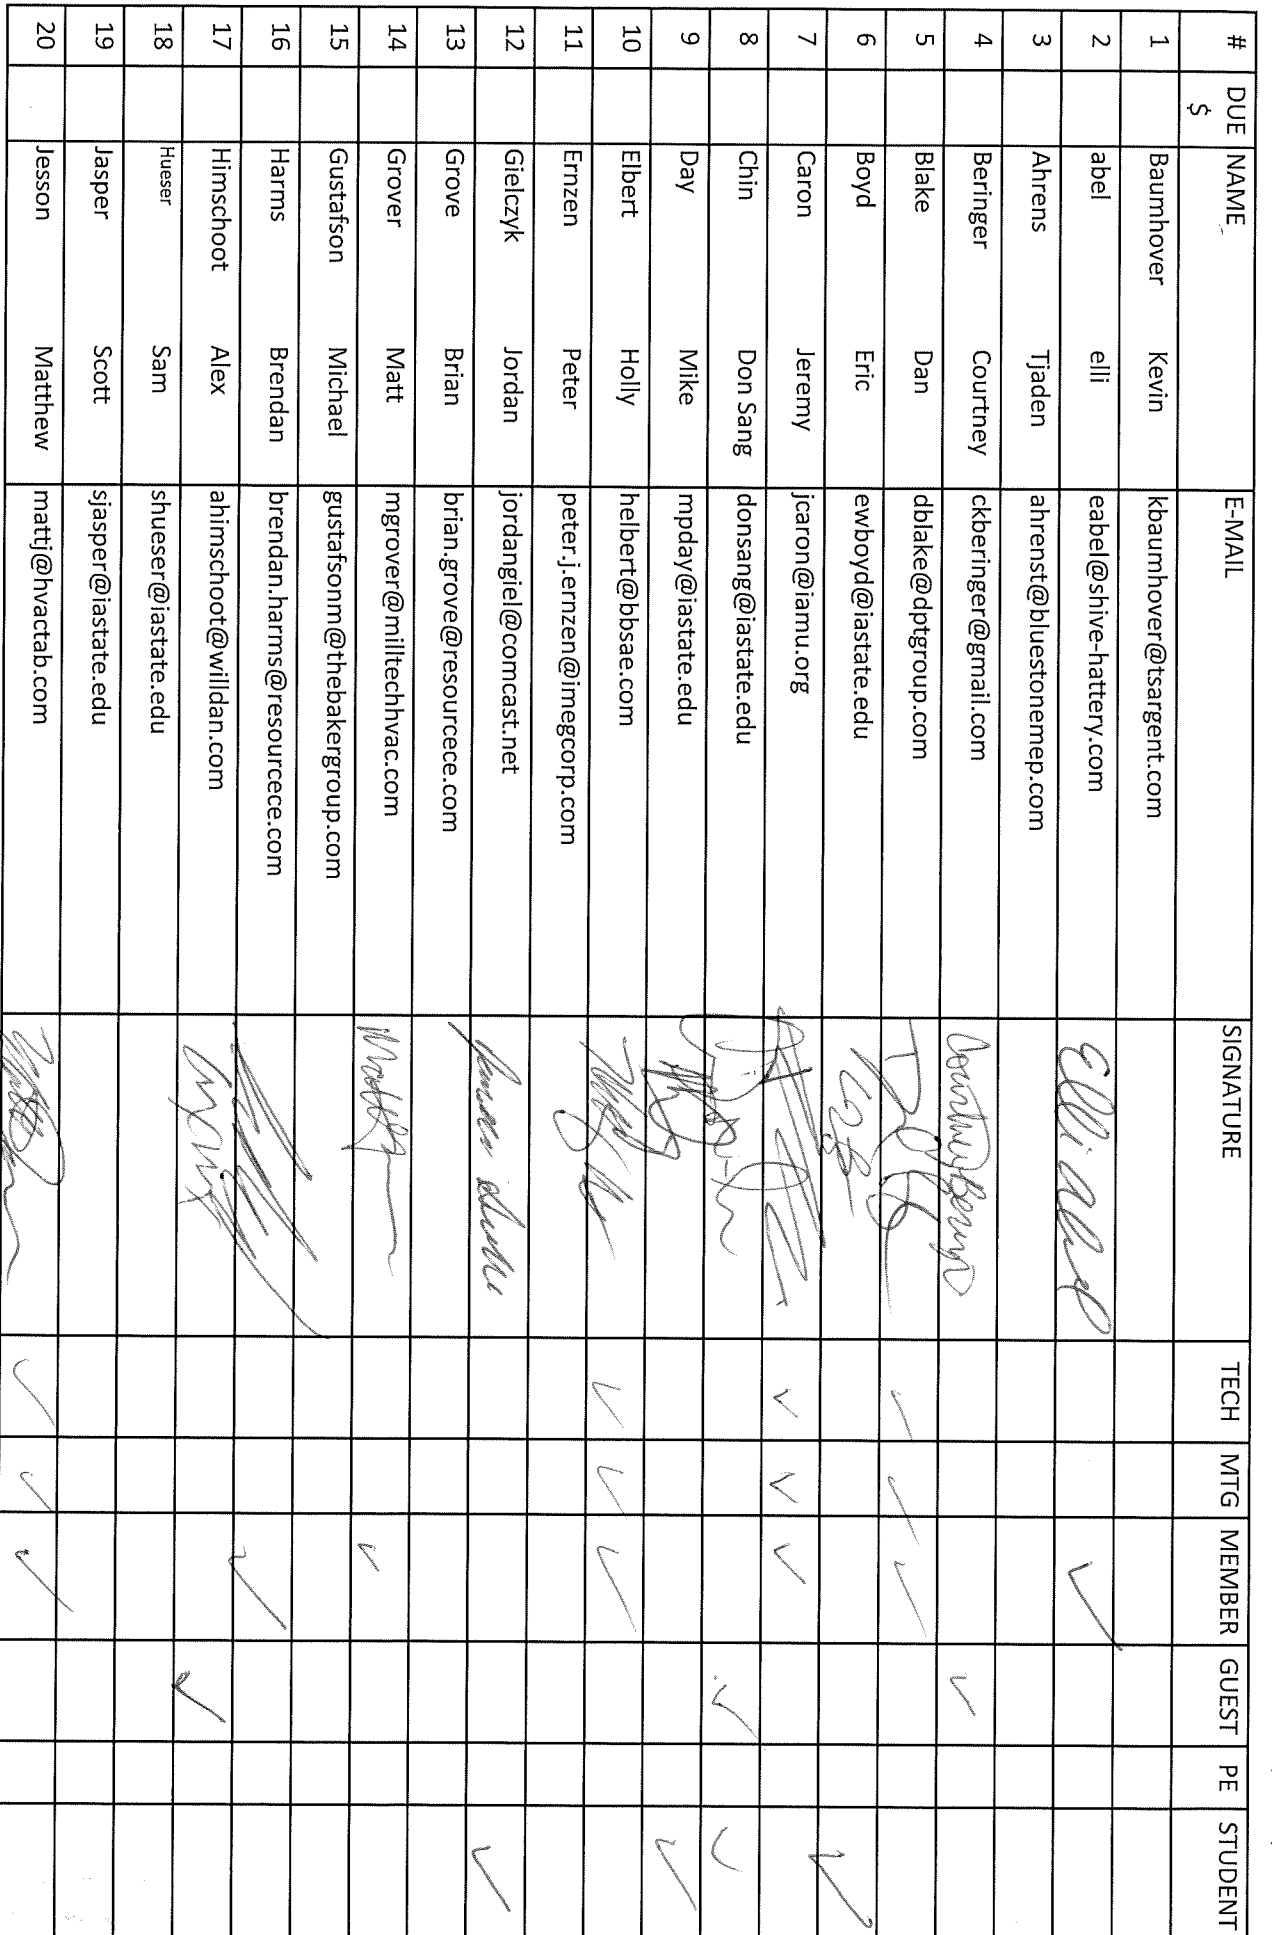 # DUE $ NAME E-MAIL SIGNATURE TECH MTG MEMBER GUEST PE STUDENT
1 Baumhover Kevin kbaumhover@tsargent.com
2 abel elli eabel@shive-hattery.com Elli Abel ✓
3 Ahrens Tjaden ahrenst@bluestonemep.com
4 Beringer Courtney ckberinger@gmail.com Courtney ✓
5 Blake Dan dblake@dptgroup.com ✓ ✓ ✓
6 Boyd Eric ewboyd@iastate.edu ✓
7 Caron Jeremy jcaron@iamu.org ✓ ✓ ✓
8 Chin Don Sang donsang@iastate.edu ✓ ✓
9 Day Mike mpday@iastate.edu ✓
10 Elbert Holly helbert@bbsae.com ✓ ✓ ✓
11 Ernzen Peter peter.j.ernzen@imegcorp.com
12 Gielczyk Jordan jordangiel@comcast.net ✓
13 Grove Brian brian.grove@resourcece.com
14 Grover Matt mgrover@milltechhvac.com Matt ✓
15 Gustafson Michael gustafsonm@thebakergroup.com
16 Harms Brendan brendan.harms@resourcece.com ✓
17 Himschoot Alex ahimschoot@willdan.com ✓
18 Hueser Sam shueser@iastate.edu
19 Jasper Scott sjasper@iastate.edu
20 Jesson Matthew mattj@hvactab.com ✓ ✓ ✓